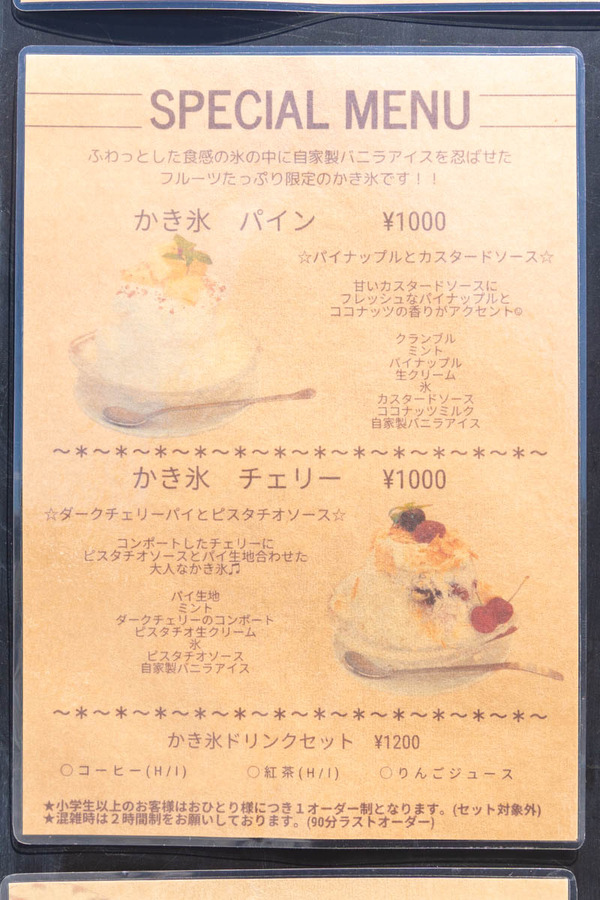 SPECIAL MENU
ふわっとした食感の氷の中に自家製バニラアイスを忍ばせた
フルーツたっぷり限定のかき氷です！！
かき氷　パイン　¥1000
☆パイナップルとカスタードソース☆
甘いカスタードソースに
フレッシュなパイナップルと
ココナッツの香りがアクセント☺
クランブル
ミント
パイナップル
生クリーム
氷
カスタードソース
ココナッツミルク
自家製バニラアイス
～＊～＊～＊～＊～＊～＊～＊～＊～＊～＊～＊～＊～＊～
かき氷　チェリー　¥1000
☆ダークチェリーパイとピスタチオソース☆
コンポートしたチェリーに
ピスタチオソースとパイ生地合わせた
大人なかき氷♫
パイ生地
ミント
ダークチェリーのコンポート
ピスタチオ生クリーム
氷
ピスタチオソース
自家製バニラアイス
～＊～＊～＊～＊～＊～＊～＊～＊～＊～＊～＊～＊～＊～
かき氷ドリンクセット　¥1200
〇コーヒー(H/I)　〇紅茶(H/I)　〇りんごジュース
★小学生以上のお客様はおひとり様につき１オーダー制となります。(セット対象外)
★混雑時は２時間制をお願いしております。(90分ラストオーダー)